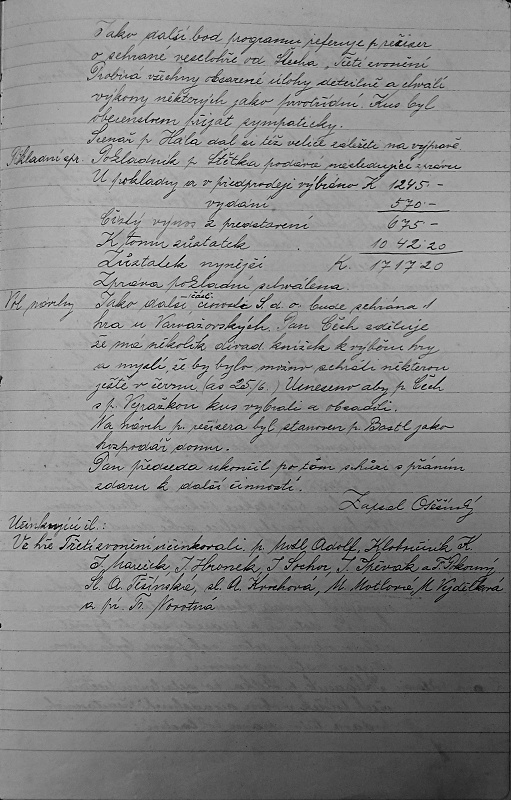 Jako další bod programu referuje p režiser
o sehrané veselohře od Štecha, Třetí zvonění
Probírá všechny obsazené úlohy detailně a chválí
výkony některých jako prvotřídní. Kus byl
obecenstvem přijat sympaticky.
Scenář p. Hála dal si též velice záležeti na výpravě.
Pokladní zpr. Pokladník p. Štětka podává následující zprávu
U pokladny a v předprodeji vybráno K 1245.-
vydání 570.-
Čistý výnos z představení 675-
K tomu zůstatek 1042.20
Zůstatek nynější K. 1717.20
Zpráva pokladní schválena.
Vol. návrhy Jako další část činnosti S. d. o. bude sehrána
hra u Varvažovských. Pan Čech sděluje
že má několik divad. knížek k výběru hry
a myslí, že by bylo možno sehráti některou
ještě v červnu (as 25/6.) Usneseno aby p. Čech
s p. Vyražkou kus vybrali a obsadili.
Na návrh p. režisera byl stanoven p. Bastl jako
hospodář domu.
Pan předseda ukončil po tom schůzi s přáním
zdaru k další činnosti.
Zapsal
Účinkující čl.:
Ve hře Třetí zvonění účinkovali. p. Motl Adolf, K.
J. Mareček J. Hronek, J. Sochor, T. Spěvak a F. Pokorný
Sl. A. Olšinská, sl. A. Krchová, M. Motlová, M. Vyděláková
a pí. Fr. Novotná